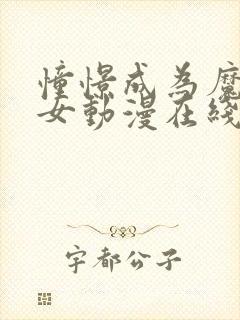 憧憬成為魔
女動漫在綫
宇都公子